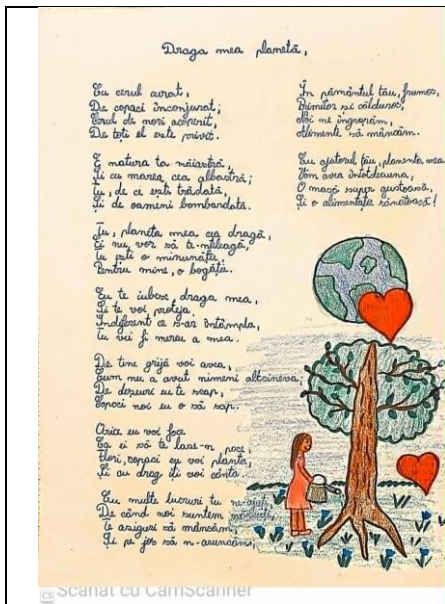 Draga mea planetă,
Cu cerul curat,
De copaci înconjurat;
Cerul de nori acoperit,
De toți el este privit.
E natura ta măiastră,
Și cu marea cea albastră;
Tu, de ce ești trădată,
Și de oameni bombardată.
Tu, planeta mea cea dragă,
Ei nu vor să te-nțeleagă,
Tu ești o minunăție,
Pentru mine, o bogăție.
Eu te iubesc, draga mea,
Și te voi proteja,
Indiferent ce s-ar întâmpla,
Tu vei fi mereu a mea.
De tine grijă voi avea,
Cum nu a avut nimeni altcineva,
De deșeuri eu te scap,
Copaci noi eu o să sap.
Orice eu voi face
Ca ei să te lase-n pace,
Flori, copaci eu voi planta,
Și cu drag îți voi cânta.
Cu multe lucruri tu ne-ajuți
De când noi suntem
Te asiguri să mâncăm,
Și pe jos să n-aruncăm,
În pământul tău, frumos,
Primitor și călduros,
Noi ne îngropăm,
Alimente să mâncăm.
Cu ajutorul tău, planeta mea
Vom avea întotdeauna,
O masă super gustoasă,
Și o alimentație sănătoasă!
CS Scanat cu CamScanner